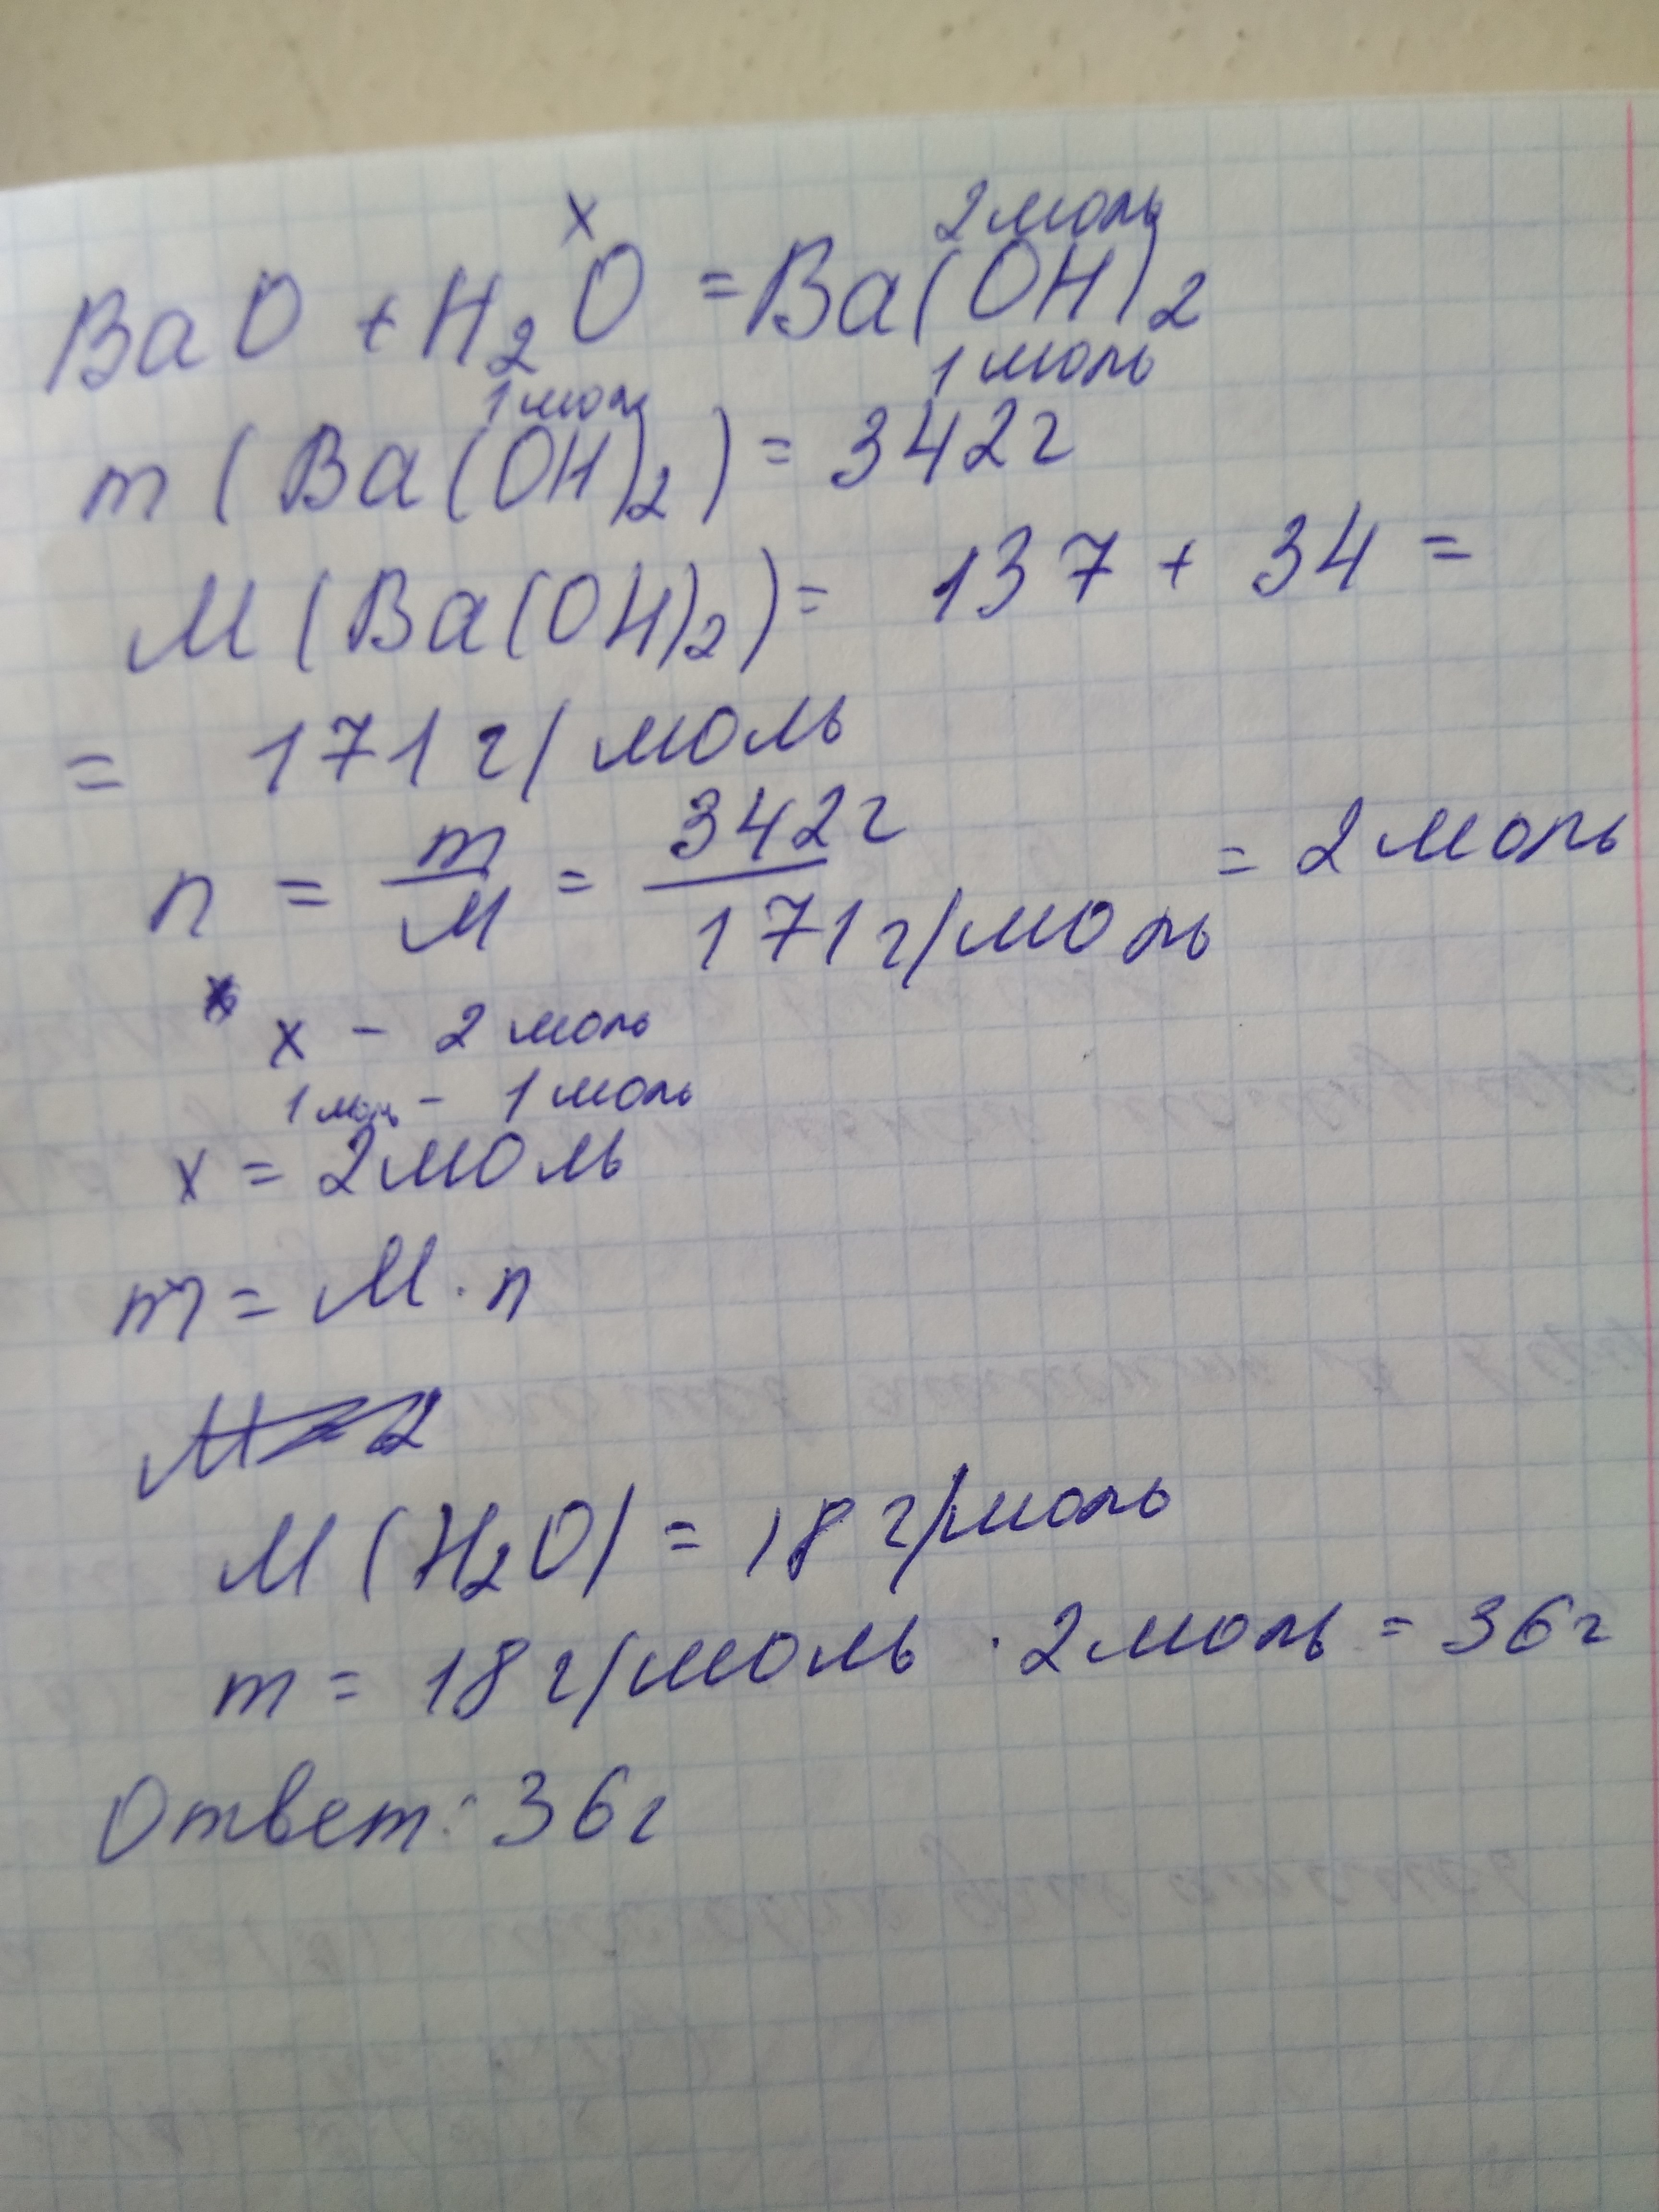 x 2 моль
BaO + H₂O = Ba(OH)₂
1 моль 1 моль
m (Ba(OH)₂) = 342 г
M (Ba(OH)₂) = 137 + 34 =
= 171 г/моль
n = m/M = 342 г / 171 г/моль = 2 моль
x - 2 моль
1 моль - 1 моль
x = 2 моль
m = M · n
M = 2
M (H₂O) = 18 г/моль
m = 18 г/моль · 2 моль = 36 г
Ответ: 36 г